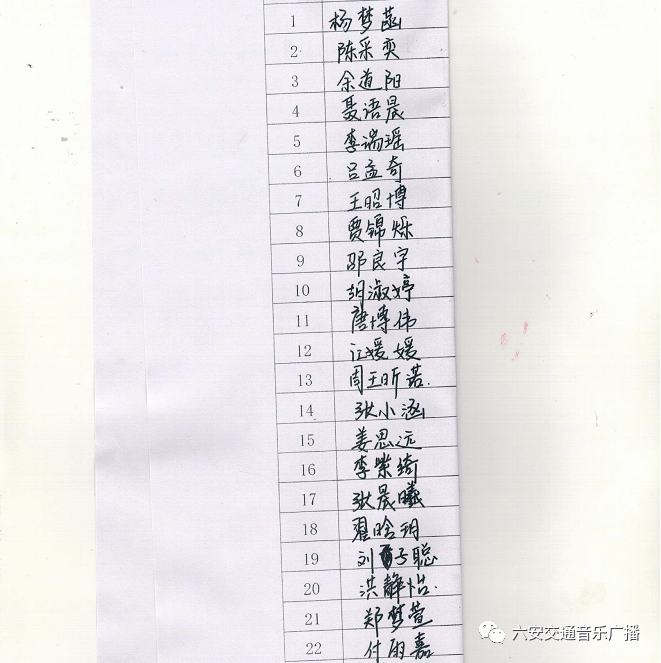 1 杨梦菡
2 陈采奕
3 余道阳
4 聂语晨
5 李瑞瑶
6 吕孟奇
7 王昭博
8 贾锦烁
9 邵良宇
10 胡淑婷
11 唐博伟
12 江媛媛
13 周王昕诺
14 张小涵
15 姜思远
16 李紫绮
17 张晨曦
18 翟晗玥
19 刘子聪
20 洪静怡
21 郑梦萱
22 付雨嘉
六安交通音乐广播